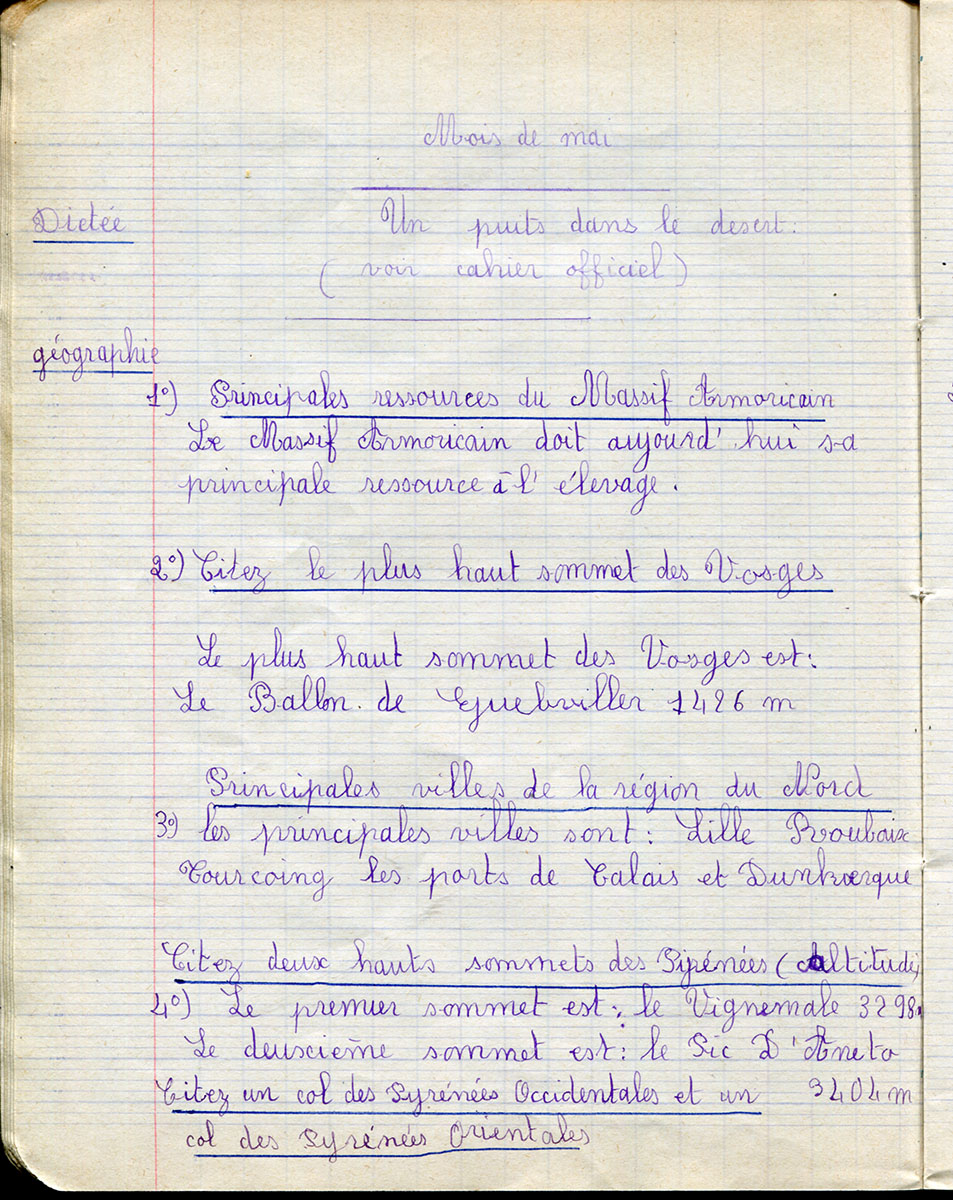 Mois de mai
Dictée Un puits dans le desert.
( voir cahier officiel )
géographie
1°) Principales ressources du Massif Armoricain
Le Massif Armoricain doit aujourd' hui sa
principale ressource à l' élevage.
2°) Citez le plus haut sommet des Vosges
Le plus haut sommet des Vosges est:
Le Ballon. de Guebviller 1426 m
Principales villes de la région du Nord
3°) les principales villes sont: Lille Roubaix
Tourcoing les ports de Calais et Dunkerque
Citez deux hauts sommets des Pyrénées (Altitude)
4°) Le premier sommet est: le Vignemale 3298m
Le deuxcième sommet est: le Pic D'Aneto
3404 m
Citez un col des Pyrénées Occidentales et un
col des Pyrénées Orientales